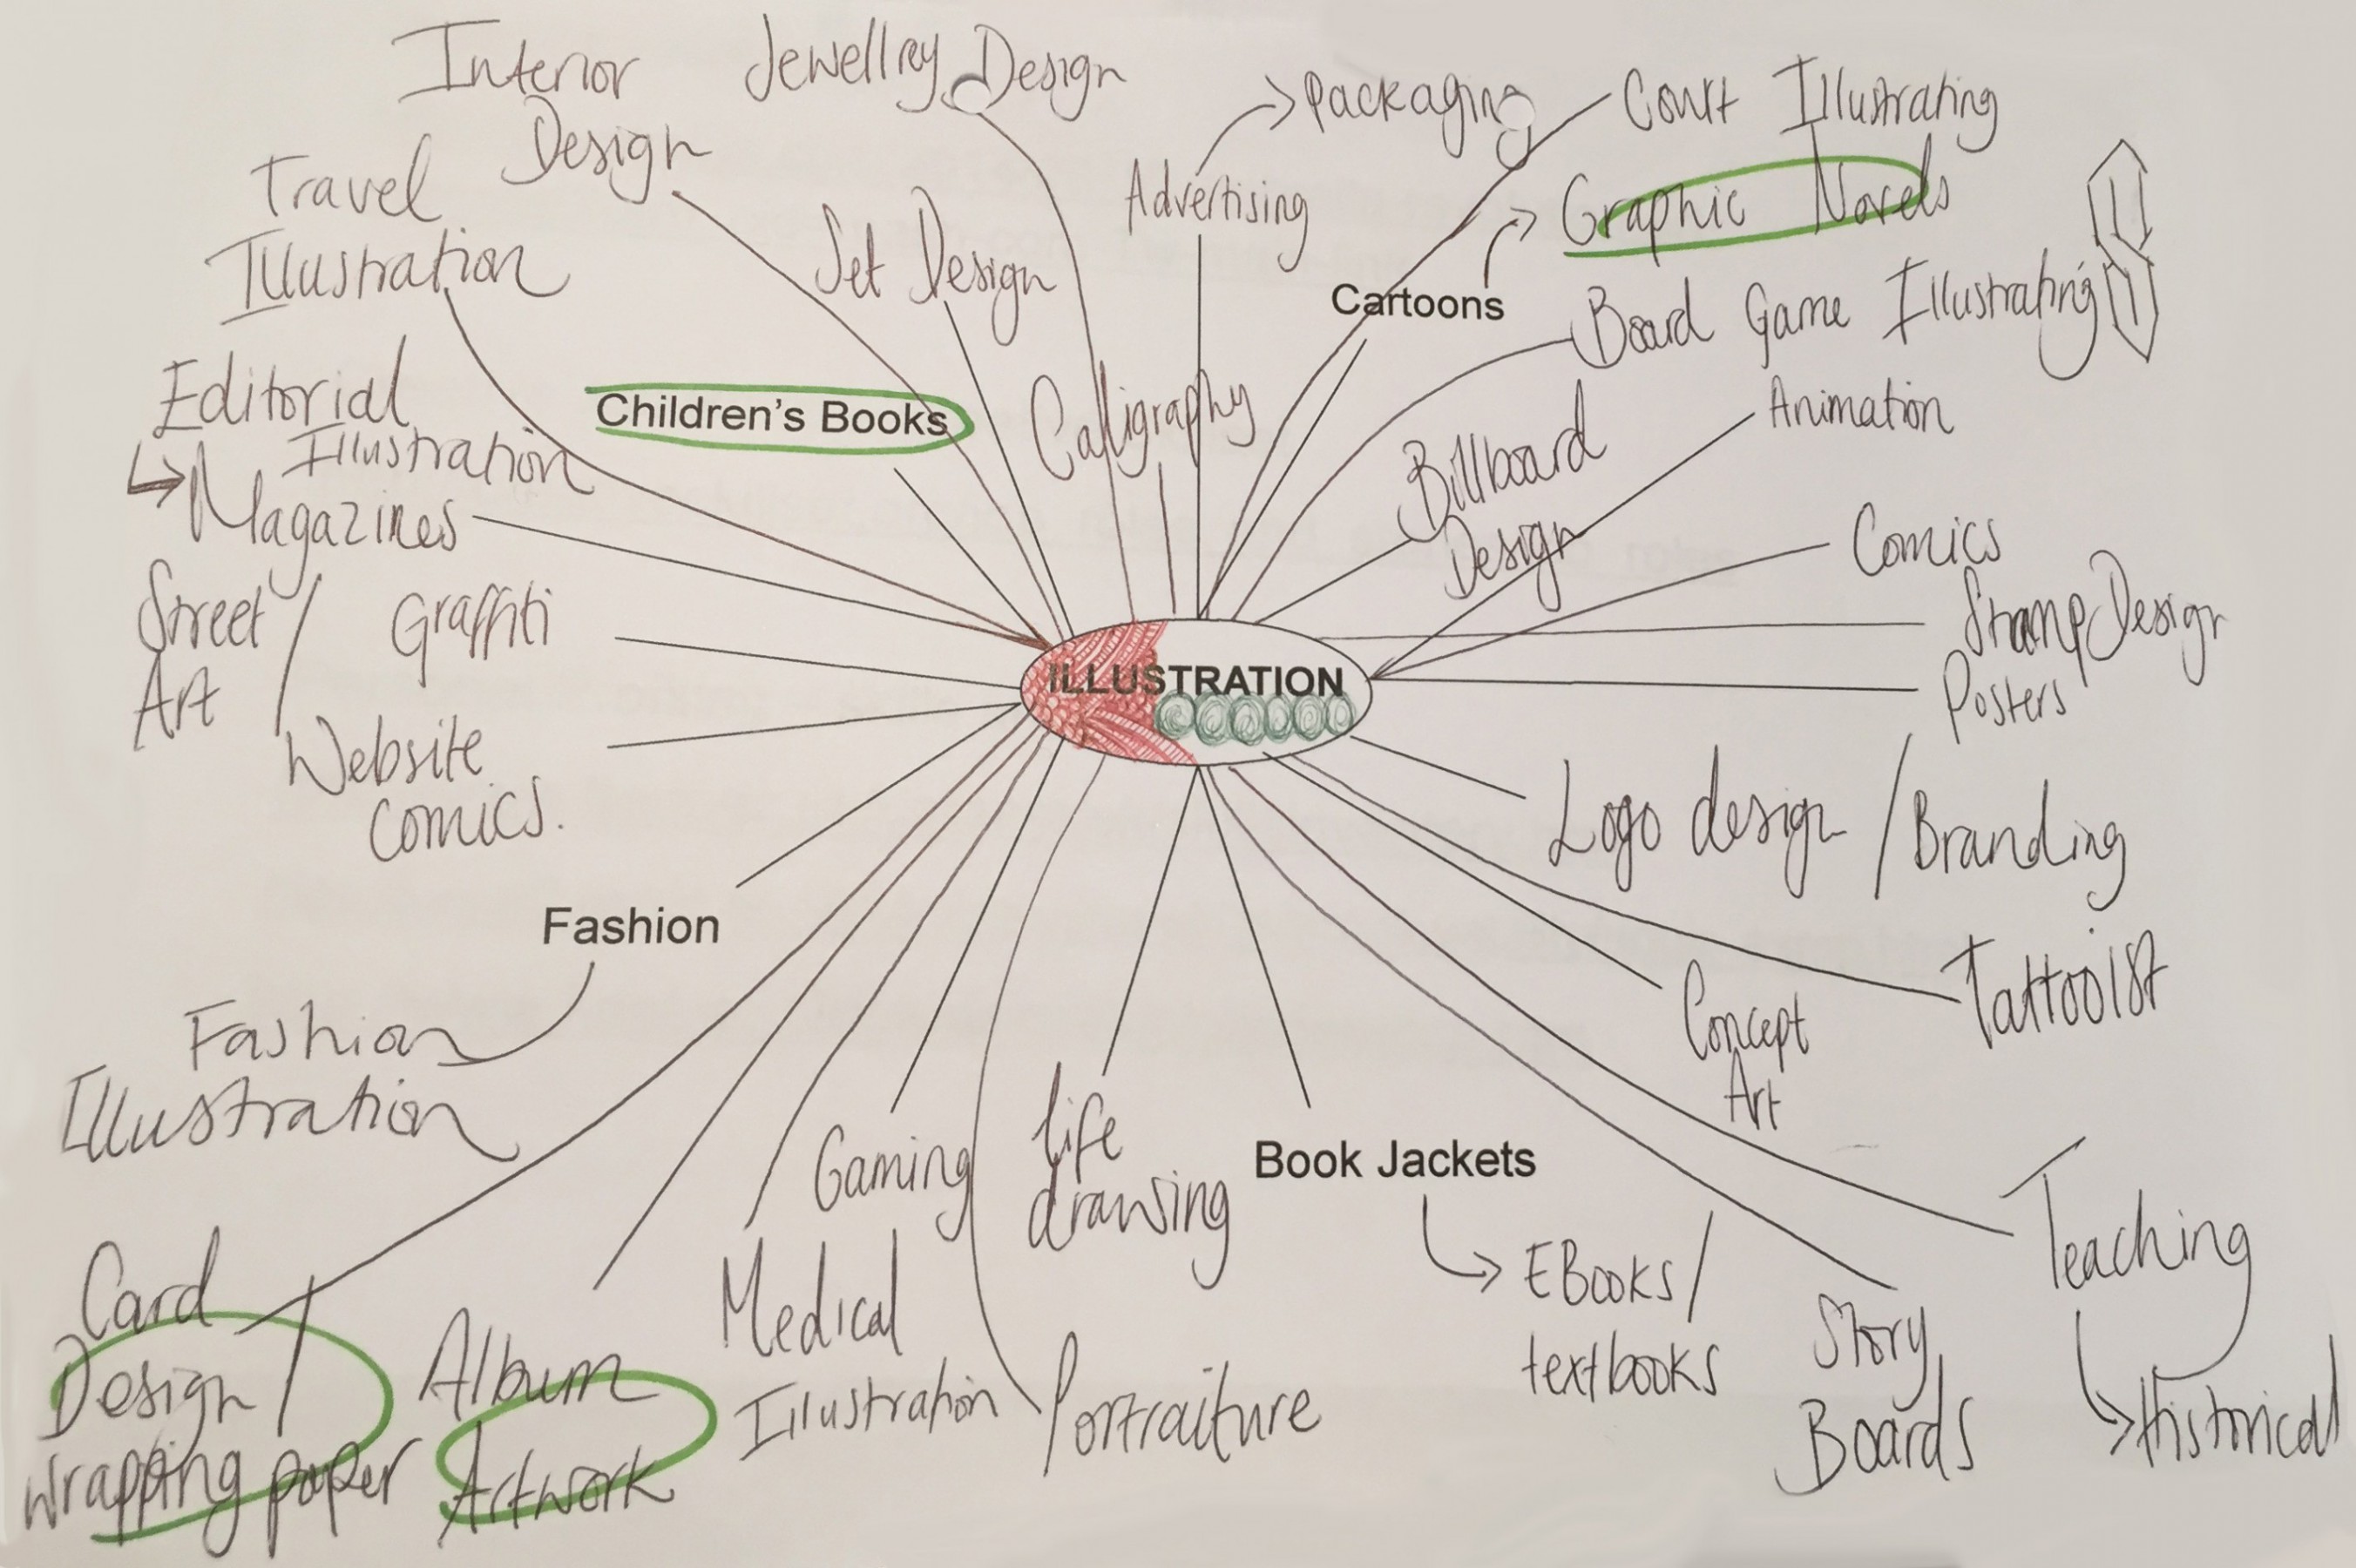 Interior
Design
Jewellry Design
Packaging
Court Illustrating
Travel
Illustration
Set Design
Advertising
Graphic Novels
Cartoons
Board Game Illustrating
Editorial
Illustration
Magazines
Children's Books
Calligraphy
Billboard
Design
Animation
Comics
Street /
Art
Graffiti
Stamp Design
Posters
ILLUSTRATION
Website
Comics.
Logo design / Branding
Fashion
Fashion
Illustration
Tattooist
Concept
Art
Gaming
life
drawing
Book Jackets
EBooks/
textbooks
Teaching
Historical
Story
Boards
Card
Design /
wrapping paper
Album
Artwork
Medical
Illustration
Portraiture